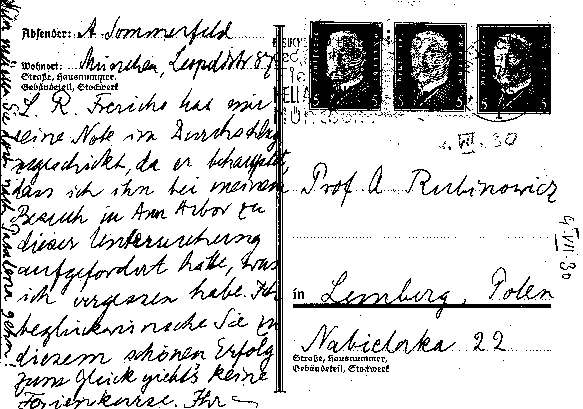 Absender: A. Sommerfeld
Wohnort: München, Leopoldstr 87
Straße, Hausnummer,
Gebäudeteil, Stockwerk
L. R. Frerichs hat mir
eine Note im Durchschlag
zugeschickt, da er behauptet,
dass ich ihn bei meinem
Besuch in Ann Arbor zu
dieser Untersuchung
aufgefordert hätte, was
ich vergessen habe. Ich
beglückwünsche Sie zu
diesem schönen Erfolg
zum Glück giebts keine
Ferienkurse. Ihr
nach Pasadena gehen!
5 5 5
VII. 30
Prof. A Rubinowicz
4. VII. 30
in Lemberg, Polen
Nabielaka 22
Straße, Hausnummer,
Gebäudeteil, Stockwerk